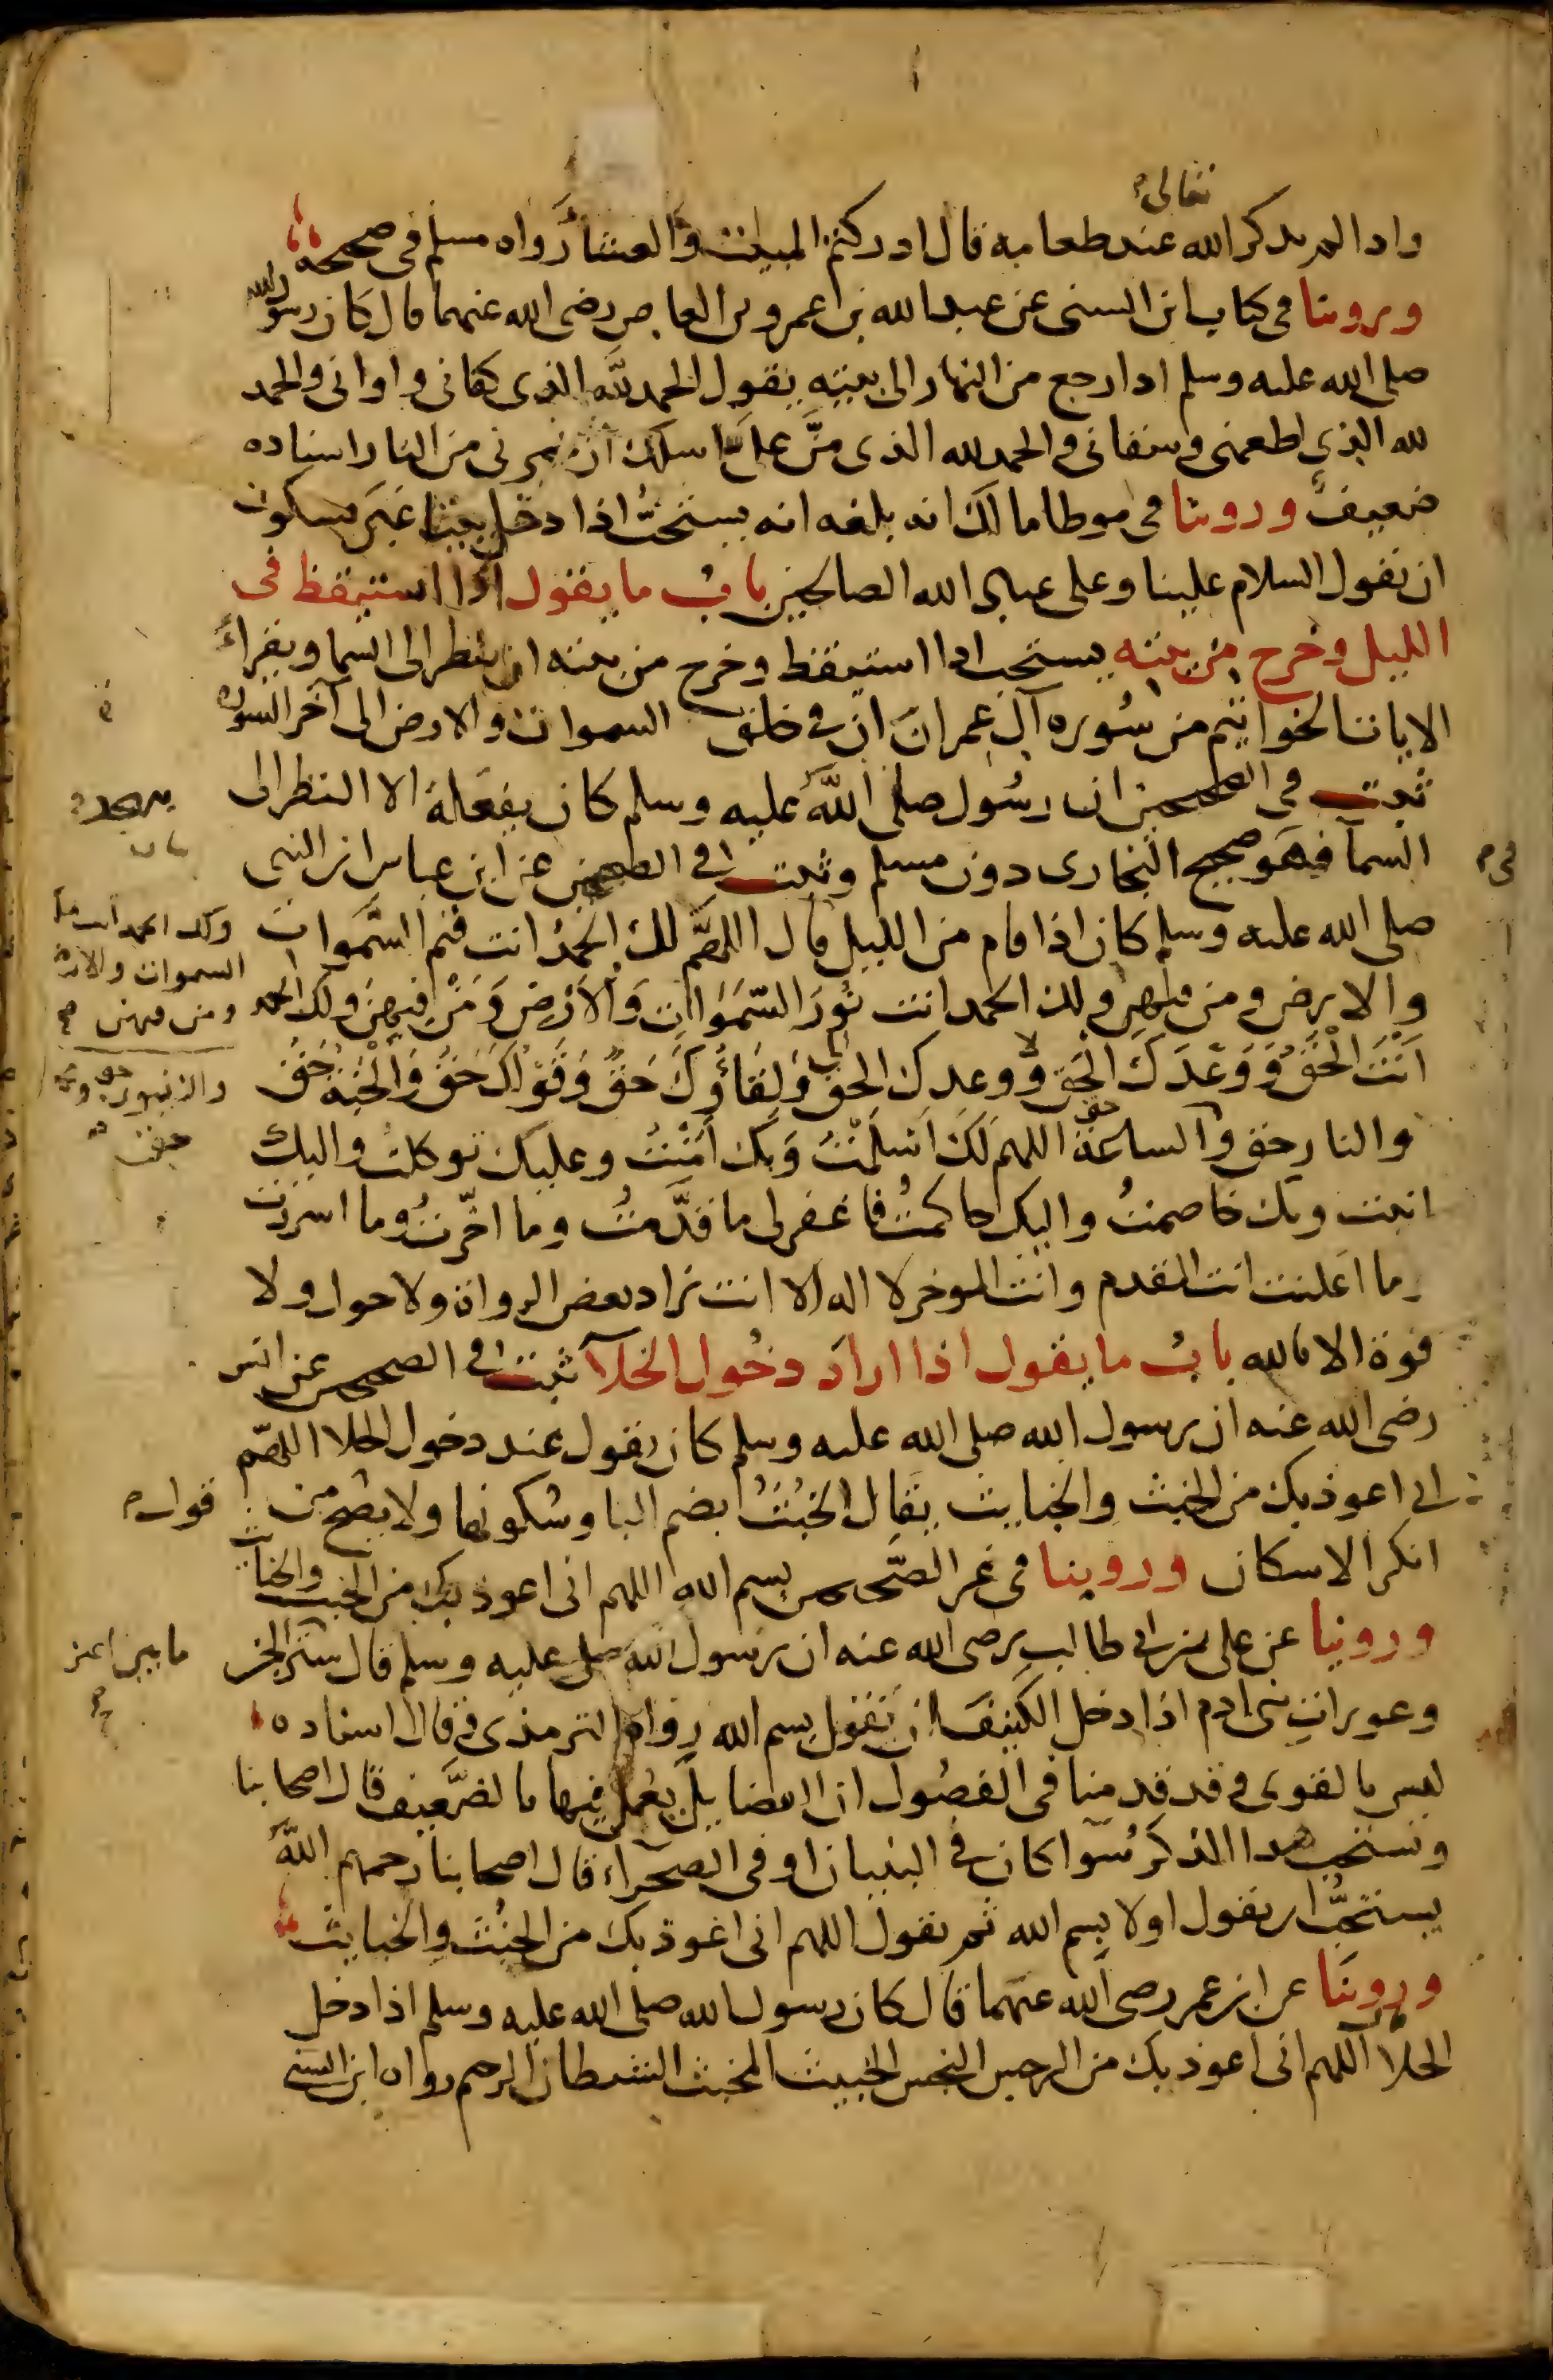 تعالى
واذا لم يذكر الله عند طعامه قال ادركتم المبيت والعشا رواه مسلم في صحيحه
وروينا في كتاب ابن السنى عن عبد الله بن عمرو بن العاص رضى الله عنهما قال كان رسول الله
صلى الله عليه وسلم اذا رجع من النهار الى بيته يقول الحمد لله الذى كفانى واوانى والحمد
لله الذى اطعمنى وسقانى والحمد لله الذى منّ علىّ اسلك ان تجيرنى من النار اسناده
ضعيف وروينا في موطا مالك انه بلغه انه يستحبّ اذا دخل بيتا غير مسكون
ان تقول السلام علينا وعلى عباد الله الصالحين باب ما يقول اذا استيقظ فى
الليل وخرج من بيته يستحب اذا استيقظ وخرج من بيته ان ينظر الى السما ويقراء
الايات الخواتيم من سوره آل عمران ان في خلق السموات والارض الى آخر السوره
ثبت في الصحيحين ان رسول صلى الله عليه وسلم كان يفعله الا النظر الى
السمآ فهو صحيح البخارى دون مسلم وثبت في الصحيحين عن ابن عباس ان النبى
في
صلى الله عليه وسلم كان اذا قام من الليل قال اللهمّ لك الحمد انت قيم السّموات
ولك الحمد انت ملك
السموات والارض
ومن فيهن صح
والارض ومن فيهن ولك الحمد انت نور السّموات والارض ومن فيهن ولك الحمد
انت الحق ووعدك الحق ووعدك الحق ولقاؤك حق وقولك حق والجنة حق
والنبيون حق
والنار حق والساعة حق اللهم لك اسلمت وبك امنت وعليك توكلت واليك
انبت وبك خاصمت واليك حاكمت فاغفر لى ما قدّمت وما اخّرت وما اسررت
وما اعلنت انت المقدم وانت الموخر لا اله الا انت زاد بعض الرواة ولا حول ولا
قوة الا بالله باب ما يقول اذا اراد دخول الخلآ ثبت في الصحيحين عن انس
رضى الله عنه ان رسول الله صلى الله عليه وسلم كان يقول عند دخول الخلا اللهمّ
انى اعوذ بك من الخبث والخبايث يقال الخبث بضم البا وسكونها ولا يصح من
قول
انكر الاسكان وروينا في غير الصّحيحين بسم الله اللهم انى اعوذ بك من الخبث والخبائث
وروينا عن على بن ابي طالب رضى الله عنه ان رسول الله صلى عليه وسلم قال ستر الجن
ما بين اعين
وعورات بنى ادم اذا دخل الكنيف ان تقول بسم الله رواه الترمذى وقال اسناده
ليس بالقوى وقد قدمنا فى الفصول ان الفضايل يعمل فيها بالضّعيف قال اصحابنا
وتستحب هذا الذكر سوآ كان في البنيان او فى الصحراء قال اصحابنا رحمهم الله
يستحبّ ان نقول اولا بسم الله ثم نقول اللهم انى اعوذ بك من الخبث والخبايث
وروينا عن ابن عمر رضى الله عنهما قال كان رسول الله صلى الله عليه وسلم اذا دخل
الخلا اللهم انى اعوذ بك من الرجس النجس الخبيث المخبث الشيطان الرجيم رواه ابن السنى